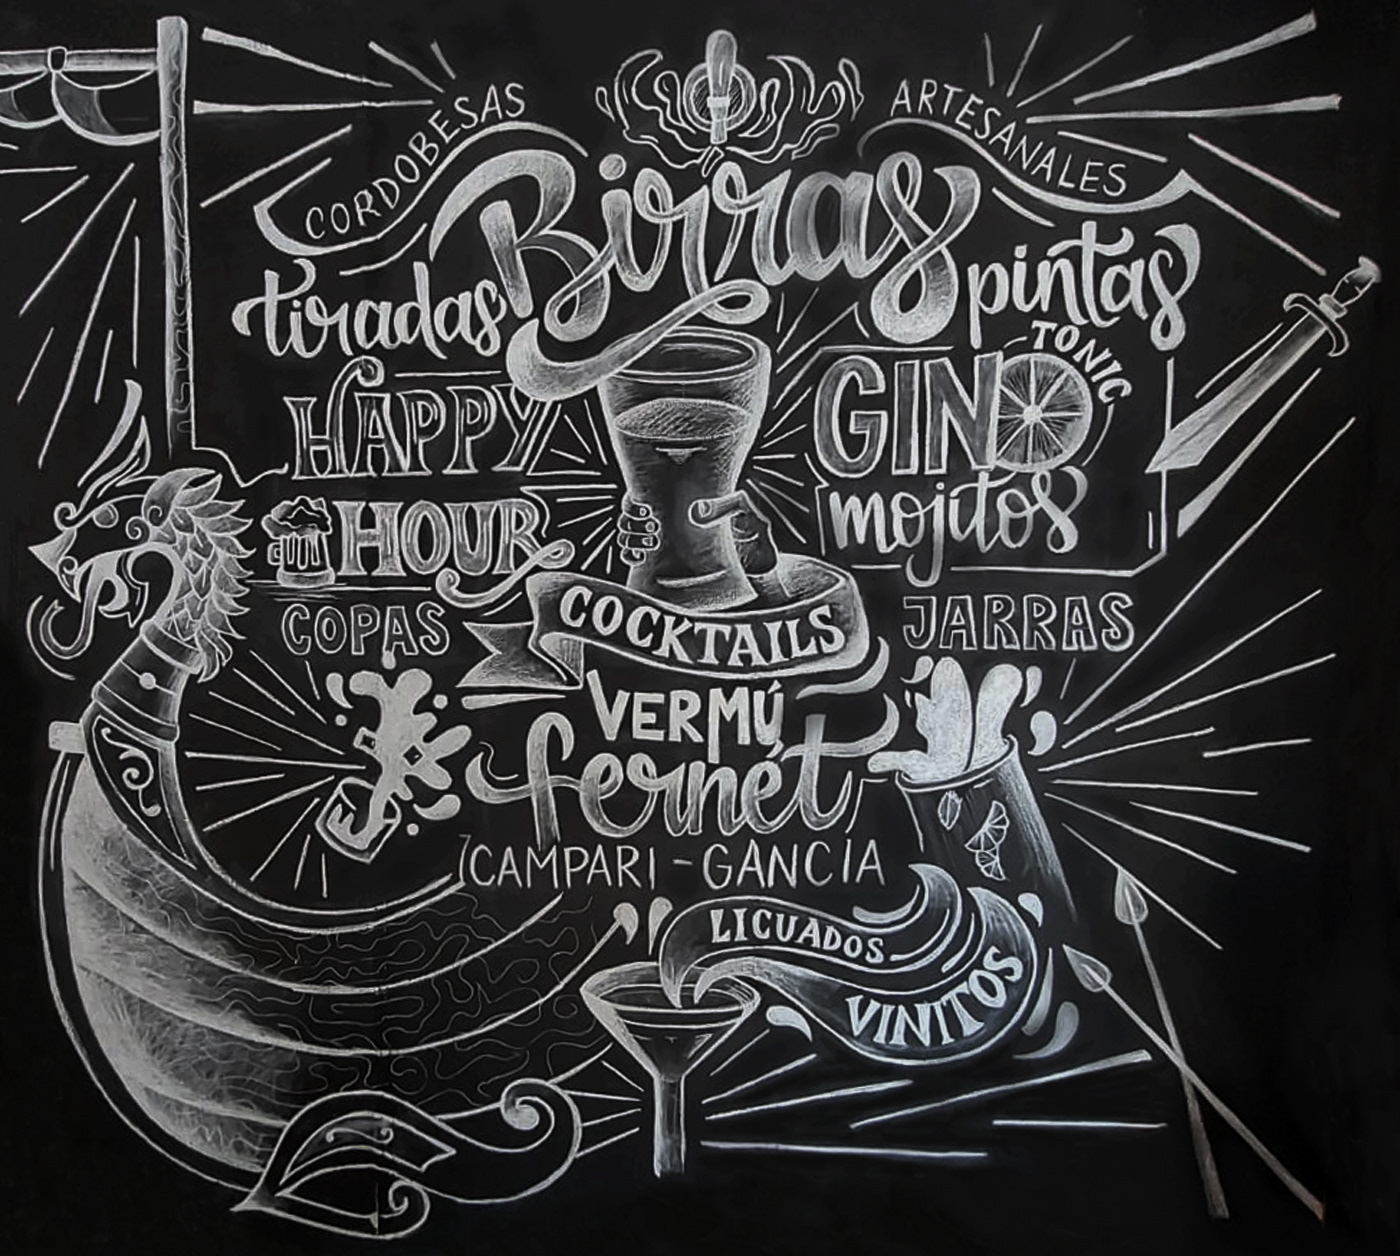 CORDOBESAS
ARTESANALES
Birras
tiradas
pintas
HAPPY
HOUR
GIN
TONIC
mojitos
COPAS
COCKTAILS
JARRAS
VERMÚ
fernét
CAMPARI - GANCIA
LICUADOS
VINITOS